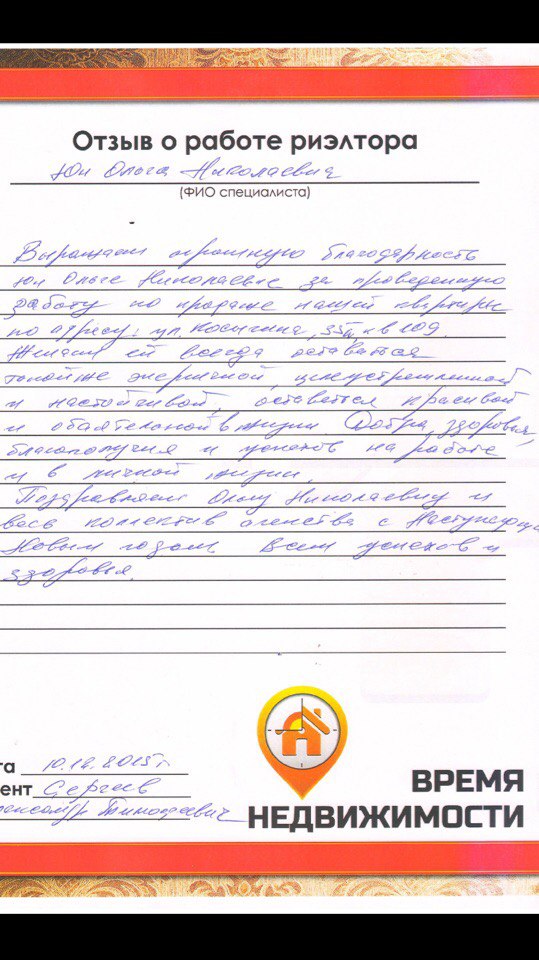 Отзыв о работе риэлтора
Юн Ольга Николаевна
(ФИО специалиста)
Выражаем огромную благодарность
Юн Ольге Николаевне за проведенную
работу по продаже нашей квартиры
по адресу: ул. Косыгина, кв 109.
Желаем ей всегда оставаться
такой же энергичной, целеустремленной
и настойчивой, оставаться красивой
и обаятельной в жизни. Добра, здоровья,
благополучия и успехов на работе
и в личной жизни.
Поздравляем Ольгу Николаевну и
весь коллектив агенства с Наступающи
Новым годом. Всем успехов и
здоровья.
та 10.12.2015г
ент Сергеев
Тимофеевич
ВРЕМЯ
НЕДВИЖИМОСТИ